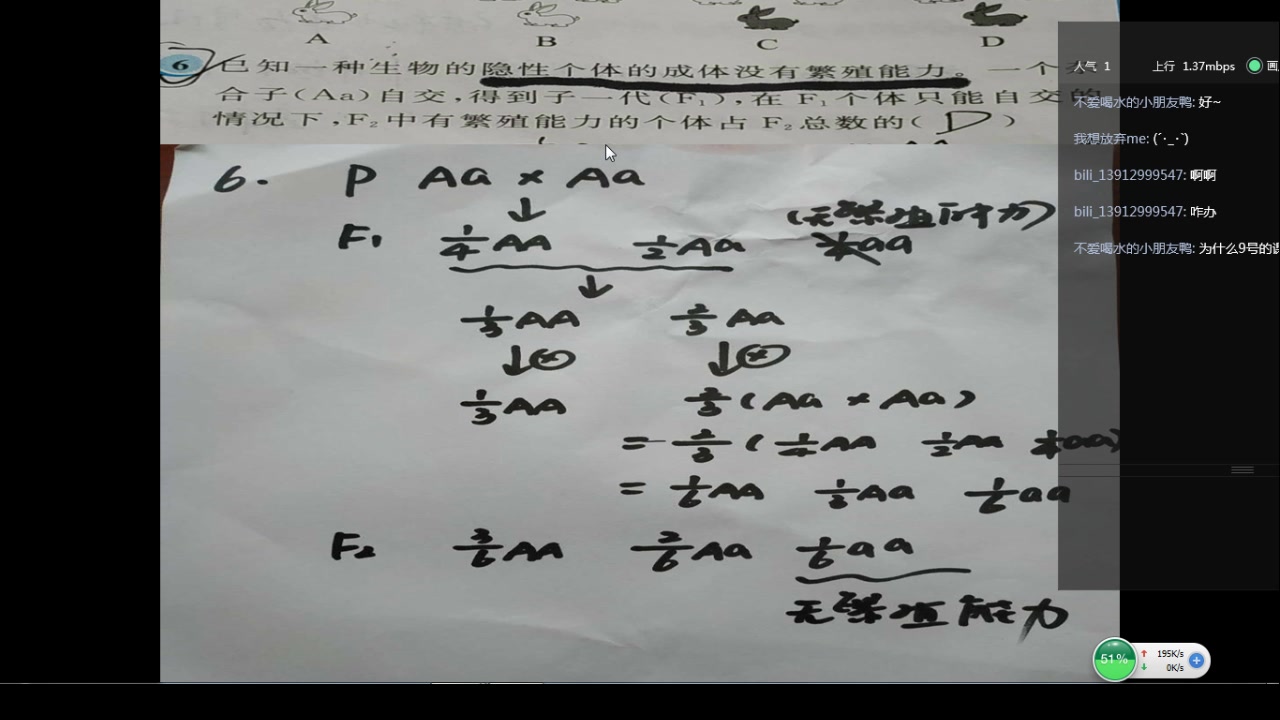 A B C D
6 已知一种生物的隐性个体的成体没有繁殖能力。一个杂
合子(Aa)自交,得到子一代(F₁),在F₁个体只能自交的
情况下,F₂中有繁殖能力的个体占F₂总数的( D )
6. P Aa × Aa
↓
(无繁殖能力)
F₁ 1/4 AA 1/2 Aa aa
↓
1/3 AA 2/3 Aa
↓⊗ ↓⊗
1/3 AA 2/3 (Aa × Aa)
= 2/3 ( 1/4 AA 1/2 Aa 1/4 aa)
= 1/6 AA 1/3 Aa 1/6 aa
F₂ 3/6 AA 2/6 Aa 1/6 aa
无繁殖能力
人气 1 上行 1.37mbps 画
不爱喝水的小朋友鸭: 好~
我想放弃me: (´·_·`)
bili_13912999547: 啊啊
bili_13912999547: 咋办
不爱喝水的小朋友鸭: 为什么9号的
51% ↑ 195K/s
↓ 0K/s